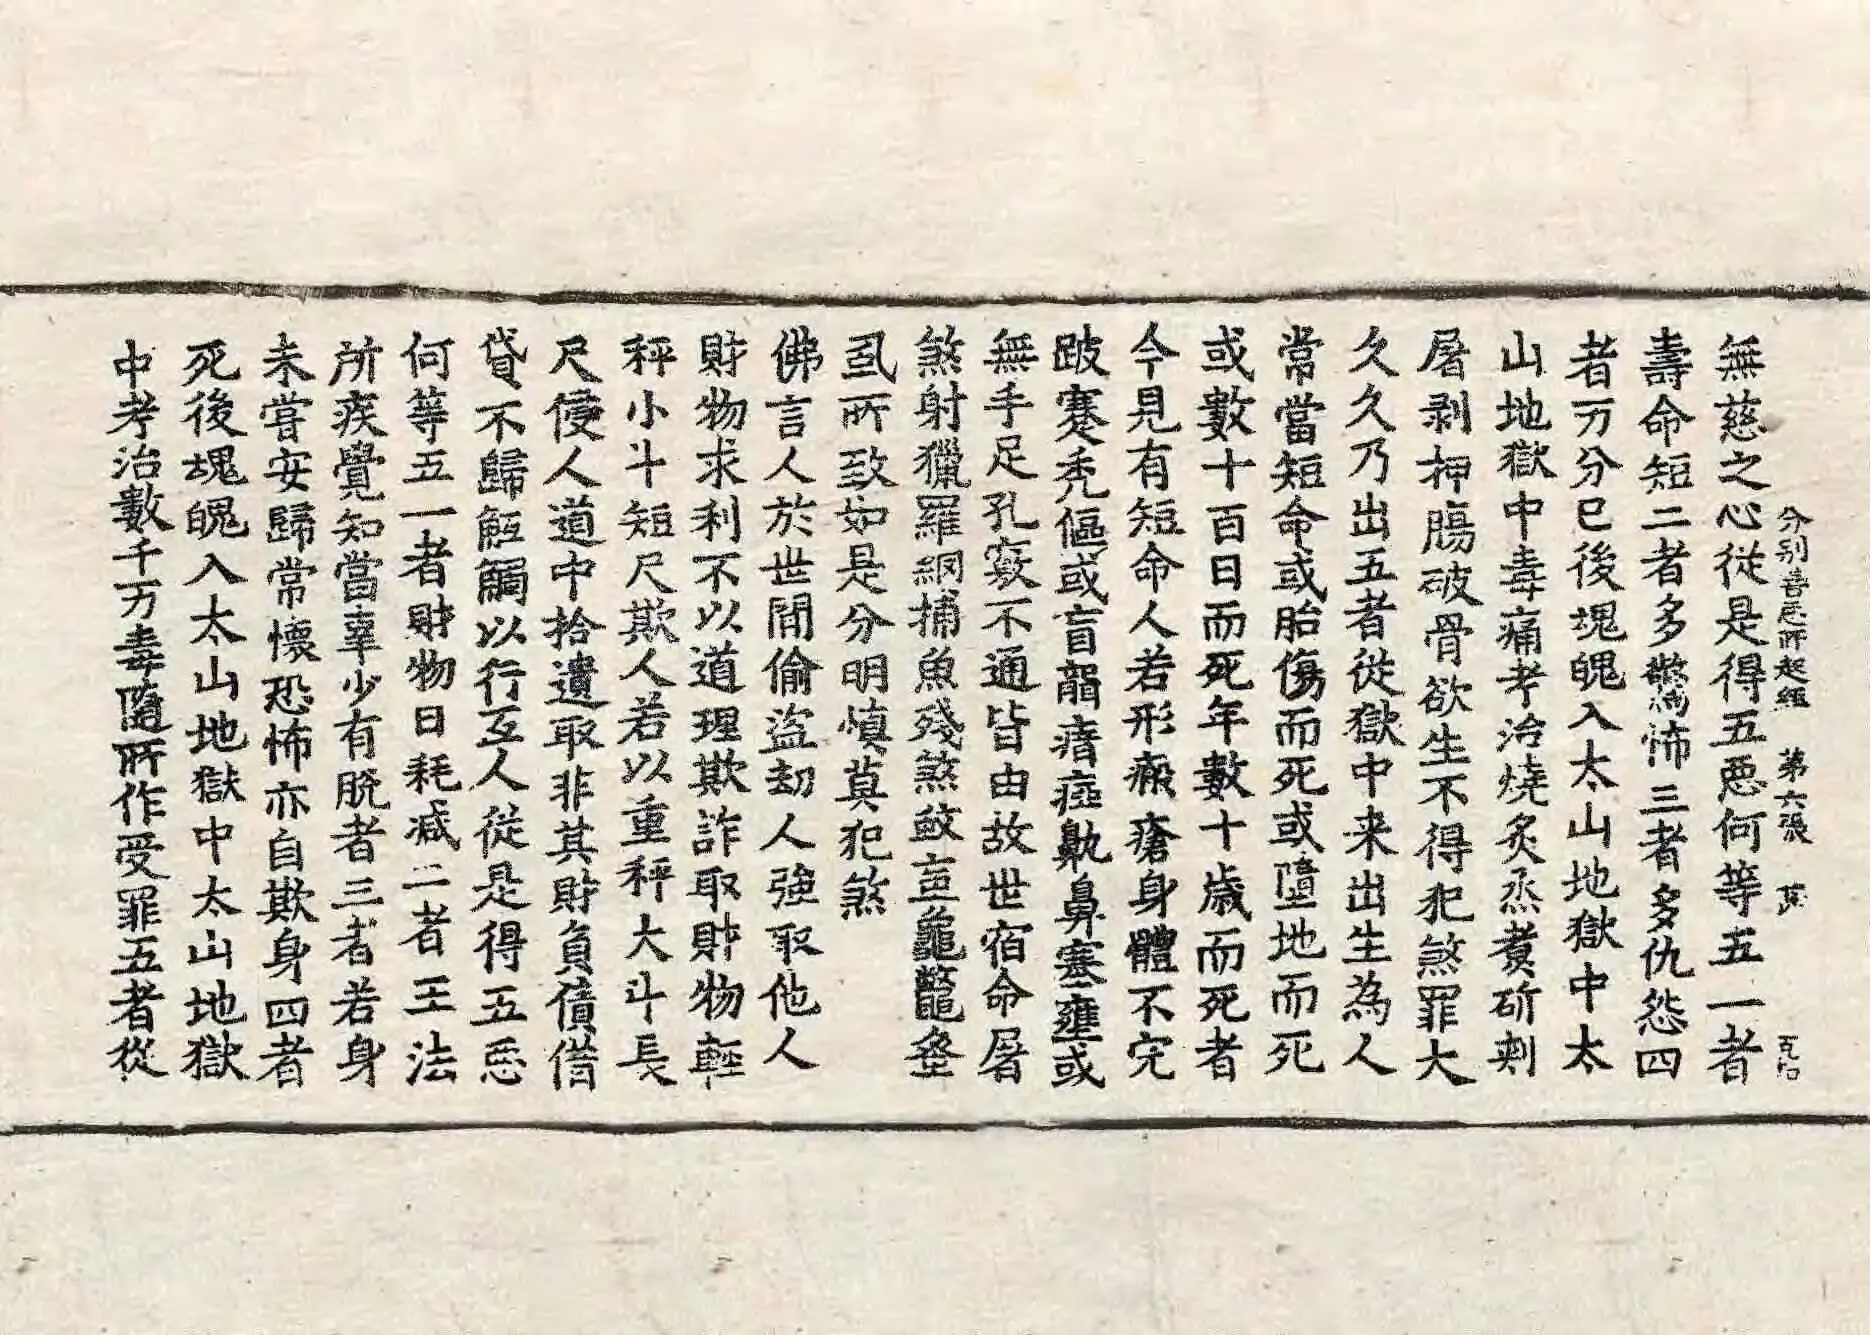 分别善惡所起經 第六張
無慈之心從是得五惡何等五一者
壽命短二者多驚怖三者多仇怨四
者万分已後魂魄入太山地獄中太
山地獄中毒痛考治燒炙烝煮斫刺
屠剥押腸破骨欲生不得犯煞罪大
久久乃出五者從獄中来出生為人
常當短命或胎傷而死或墮地而死
或數十百日而死年數十歲而死者
今見有短命人若形瘢瘡身體不完
跛蹇禿傴或盲聾瘖瘂鼽鼻塞壅或
無手足孔竅不通皆由故世宿命屠
煞射獵羅網捕魚殘煞蚊䖟龜鼈蚤
虱所致如是分明慎莫犯煞
佛言人於世間偷盜劫人強取他人
財物求利不以道理欺詐取財物輕
秤小斗短尺欺人若以重秤大斗長
尺侵人道中拾遺取非其財負債借
貸不歸觝觸以行互人從是得五惡
何等五一者財物日耗減二者王法
所疾覺知當辜少有脫者三者若身
未甞安歸常懷恐怖亦自欺身四者
死後魂魄入太山地獄中太山地獄
中考治數千万毒隨所作受罪五者從